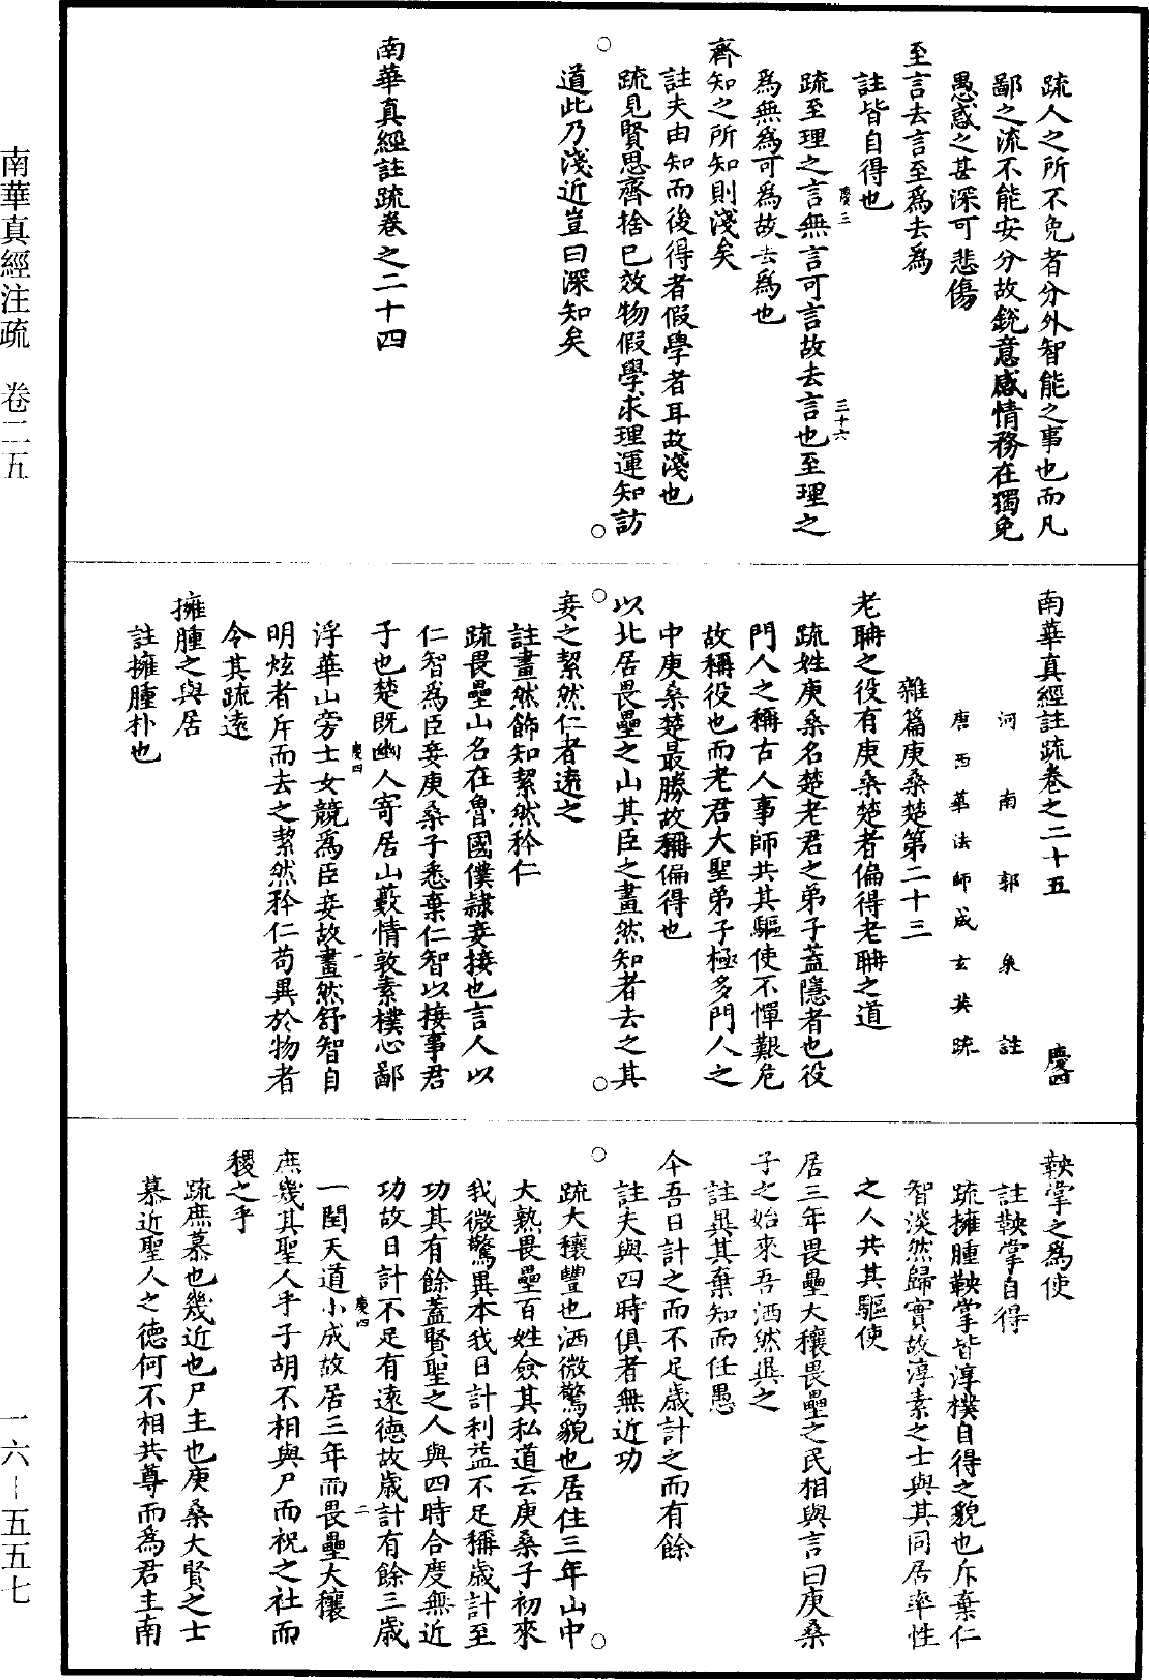 疏人之所不免者分外智能之事也而凡
鄙之流不能安分故銳意感情務在獨免
愚惑之甚深可悲傷
至言去言至爲去爲
註皆自得也
疏至理之言無言可言故去言也至理之
慶三
三十六
爲無爲可爲故去爲也
齊知之所知則淺矣
註夫由知而後得者假學者耳故淺也
疏見賢思齊捨已效物假學求理運知訪
道此乃淺近豈曰深知矣
南華真經註疏卷之二十四
南華真經註疏卷之二十五
慶四
河南郭象註
唐西華法師成玄英疏
雜篇庚桑楚第二十三
老聃之役有庚桑楚者偏得老聃之道
疏姓庚桑名楚老君之弟子蓋隱者也役
門人之稱古人事師共其驅使不憚艱危
故稱役也而老君大聖弟子極多門人之
中庚桑楚最勝故稱偏得也
以北居畏壘之山其臣之畫然知者去之其
妾之絜然仁者遠之
註畫然飾知絜然矜仁
疏畏壘山名在魯國僕隸妾接也言人以
仁智爲臣妾庚桑子悉棄仁智以接事君
子也楚既幽人寄居山藪情敦素樸心鄙
浮華山旁士女競爲臣妾故畫然舒智自
慶四
一
明炫者斥而去之絜然矜仁苟異於物者
令其疏遠
擁腫之與居
註擁腫朴也
鞅掌之爲使
註鞅掌自得
疏擁腫鞅掌皆淳樸自得之貌也斥棄仁
智淡然歸實故淳素之士與其同居率性
之人共其驅使
居三年畏壘大穰畏壘之民相與言曰庚桑
子之始來吾洒然異之
註異其棄知而任愚
今吾日計之而不足歲計之而有餘
註夫與四時俱者無近功
疏大穰豐也洒微驚貌也居住三年山中
大熟畏壘百姓僉其私道云庚桑子初來
我微驚異本我日計利益不足稱歲計至
功其有餘蓋賢聖之人與四時合度無近
功故日計不足有遠德故歲計有餘三歲
一閏天道小成故居三年而畏壘大穰
慶四
二
庶幾其聖人乎子胡不相與尸而祝之社而
稷之乎
疏庶慕也幾近也尸主也庚桑大賢之士
慕近聖人之德何不相共尊而爲君主南
南華真經注疏　卷二五
一六—五五七